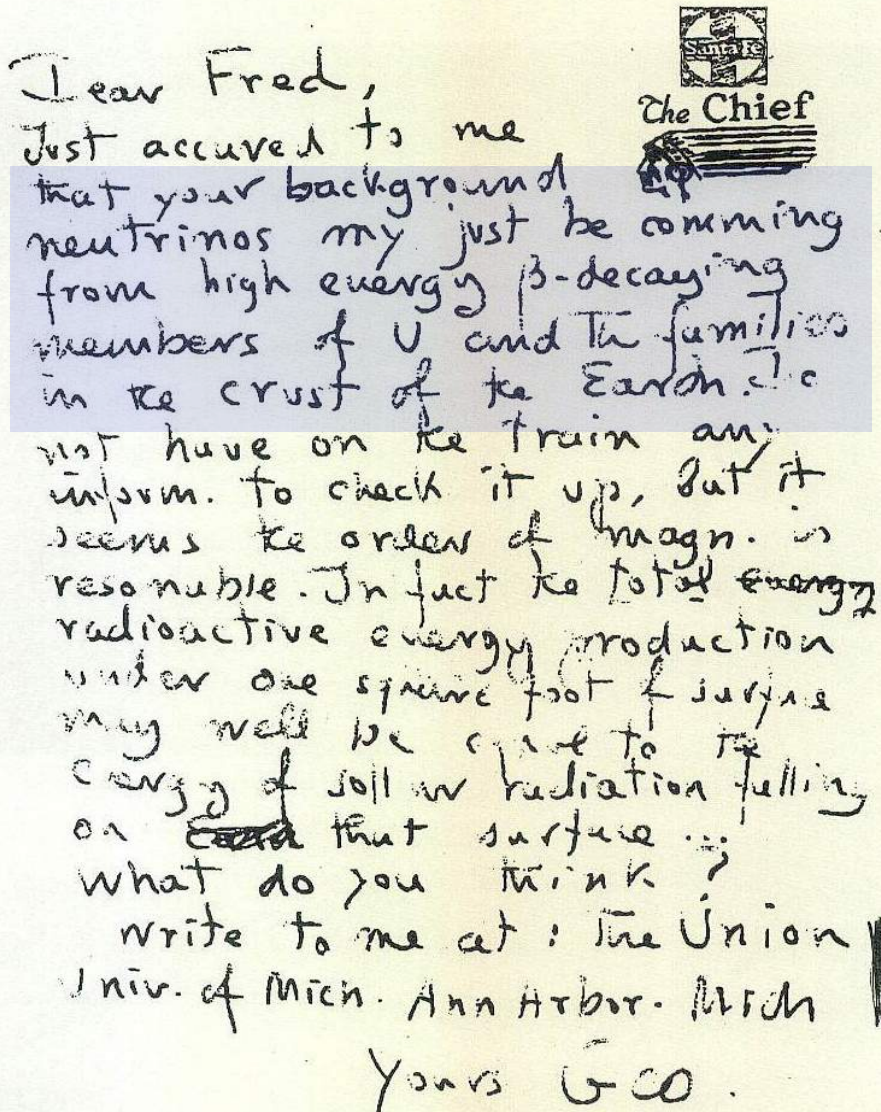 Santa Fe
The Chief
Dear Fred,
Just accured to me
that your background
neutrinos my just be comming
from high energy β-decaying
members of U and Th families
in the crust of the Earth. Do
not have on the train any
inform. to check it up, but it
seems the order of magn. is
resonable. In fact the total energy
radioactive energy production
under one square foot of surface
may well be equal to the
energy of sollar radiation falling
on that surface ...
What do you think?
Write to me at: The Union
Univ. of Mich. Ann Arbor. Mich
Yours Geo.